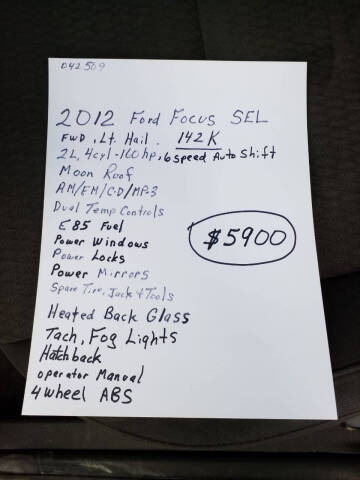 D42509
2012 Ford Focus SEL
FWD, Lt. Hail. 142K
2L, 4cyl-160hp, 6 speed Auto Shift
Moon Roof
AM/FM/CD/MP3
Dual Temp Controls
E85 Fuel
$5900
Power Windows
Power Locks
Power Mirrors
Spare Tire, Jack & Tools
Heated Back Glass
Tach, Fog Lights
Hatchback
operator Manual
4 Wheel ABS